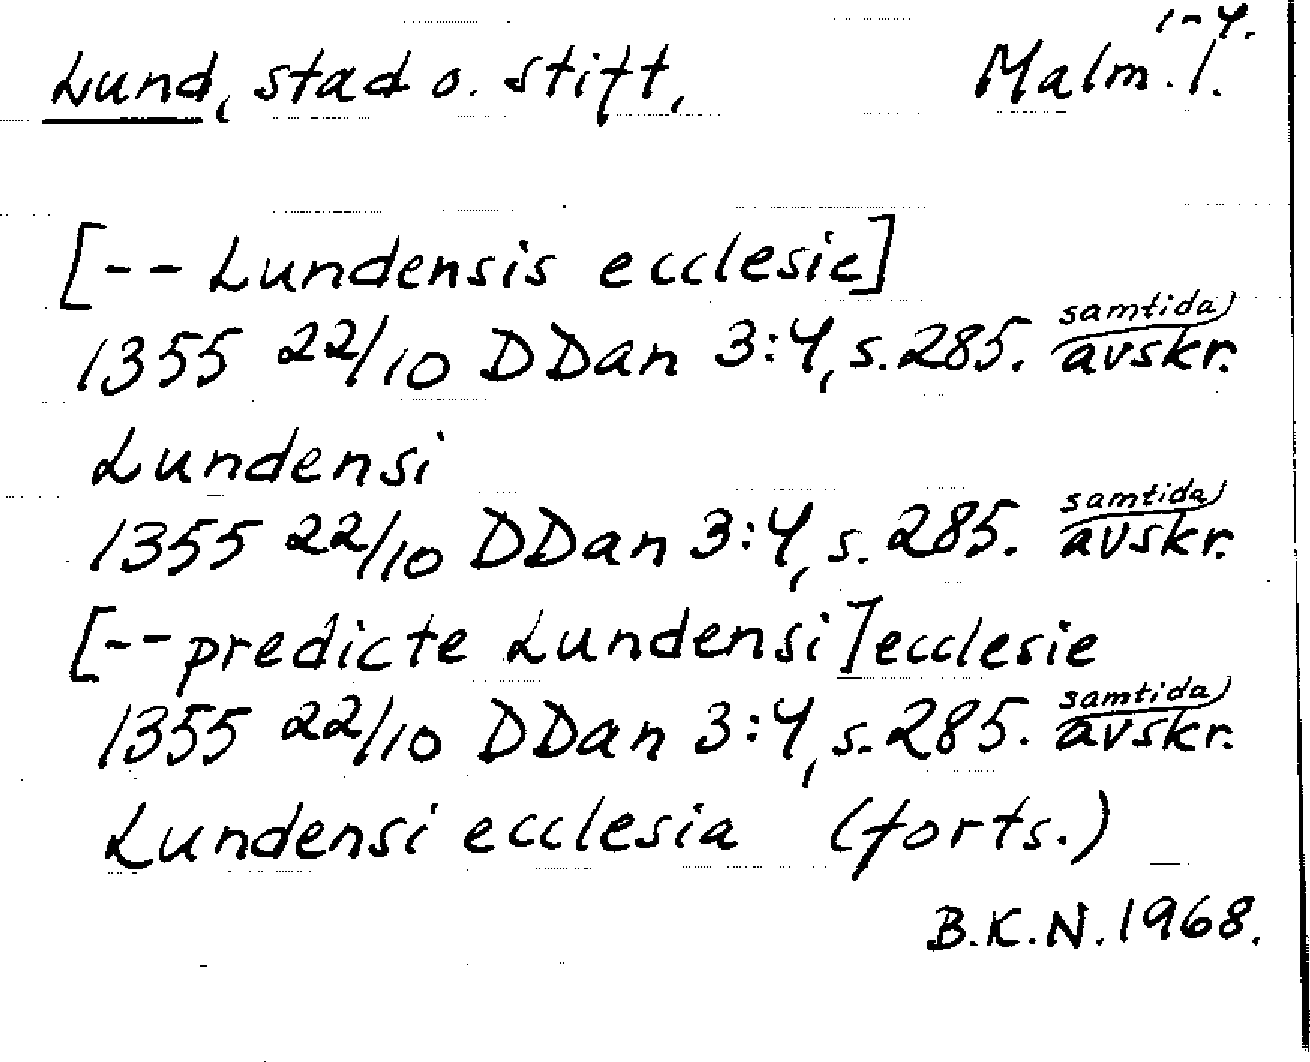 1-4.
Lund, stad o. stift, Malm. l.
[-- Lundensis ecclesie]
1355 22/10 DDan 3:4, s. 285. samtida avskr.
Lundensi
1355 22/10 DDan 3:4, s. 285. samtida avskr.
[-- predicte Lundensi] ecclesie
1355 22/10 DDan 3:4, s. 285. samtida avskr.
Lundensi ecclesia (forts.)
B.K.N. 1968.